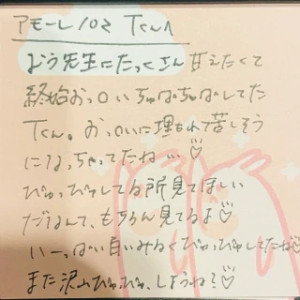 アモーレ102 Tくんへ
どう先生にたっくさん甘えたくて
終始おっ〇いちゅぱちゅぱしてた
Tくん。おっ〇いに埋もれ苦しそう
になっちゃってたね…♡
ぴゅっぴゅしてる所見てほしい
だなんて、もちろん見てるよ♡
いーっぱい白いみるくぴゅっぴゅしてたね♡
また沢山ぴゅっぴゅ、しようね?♡